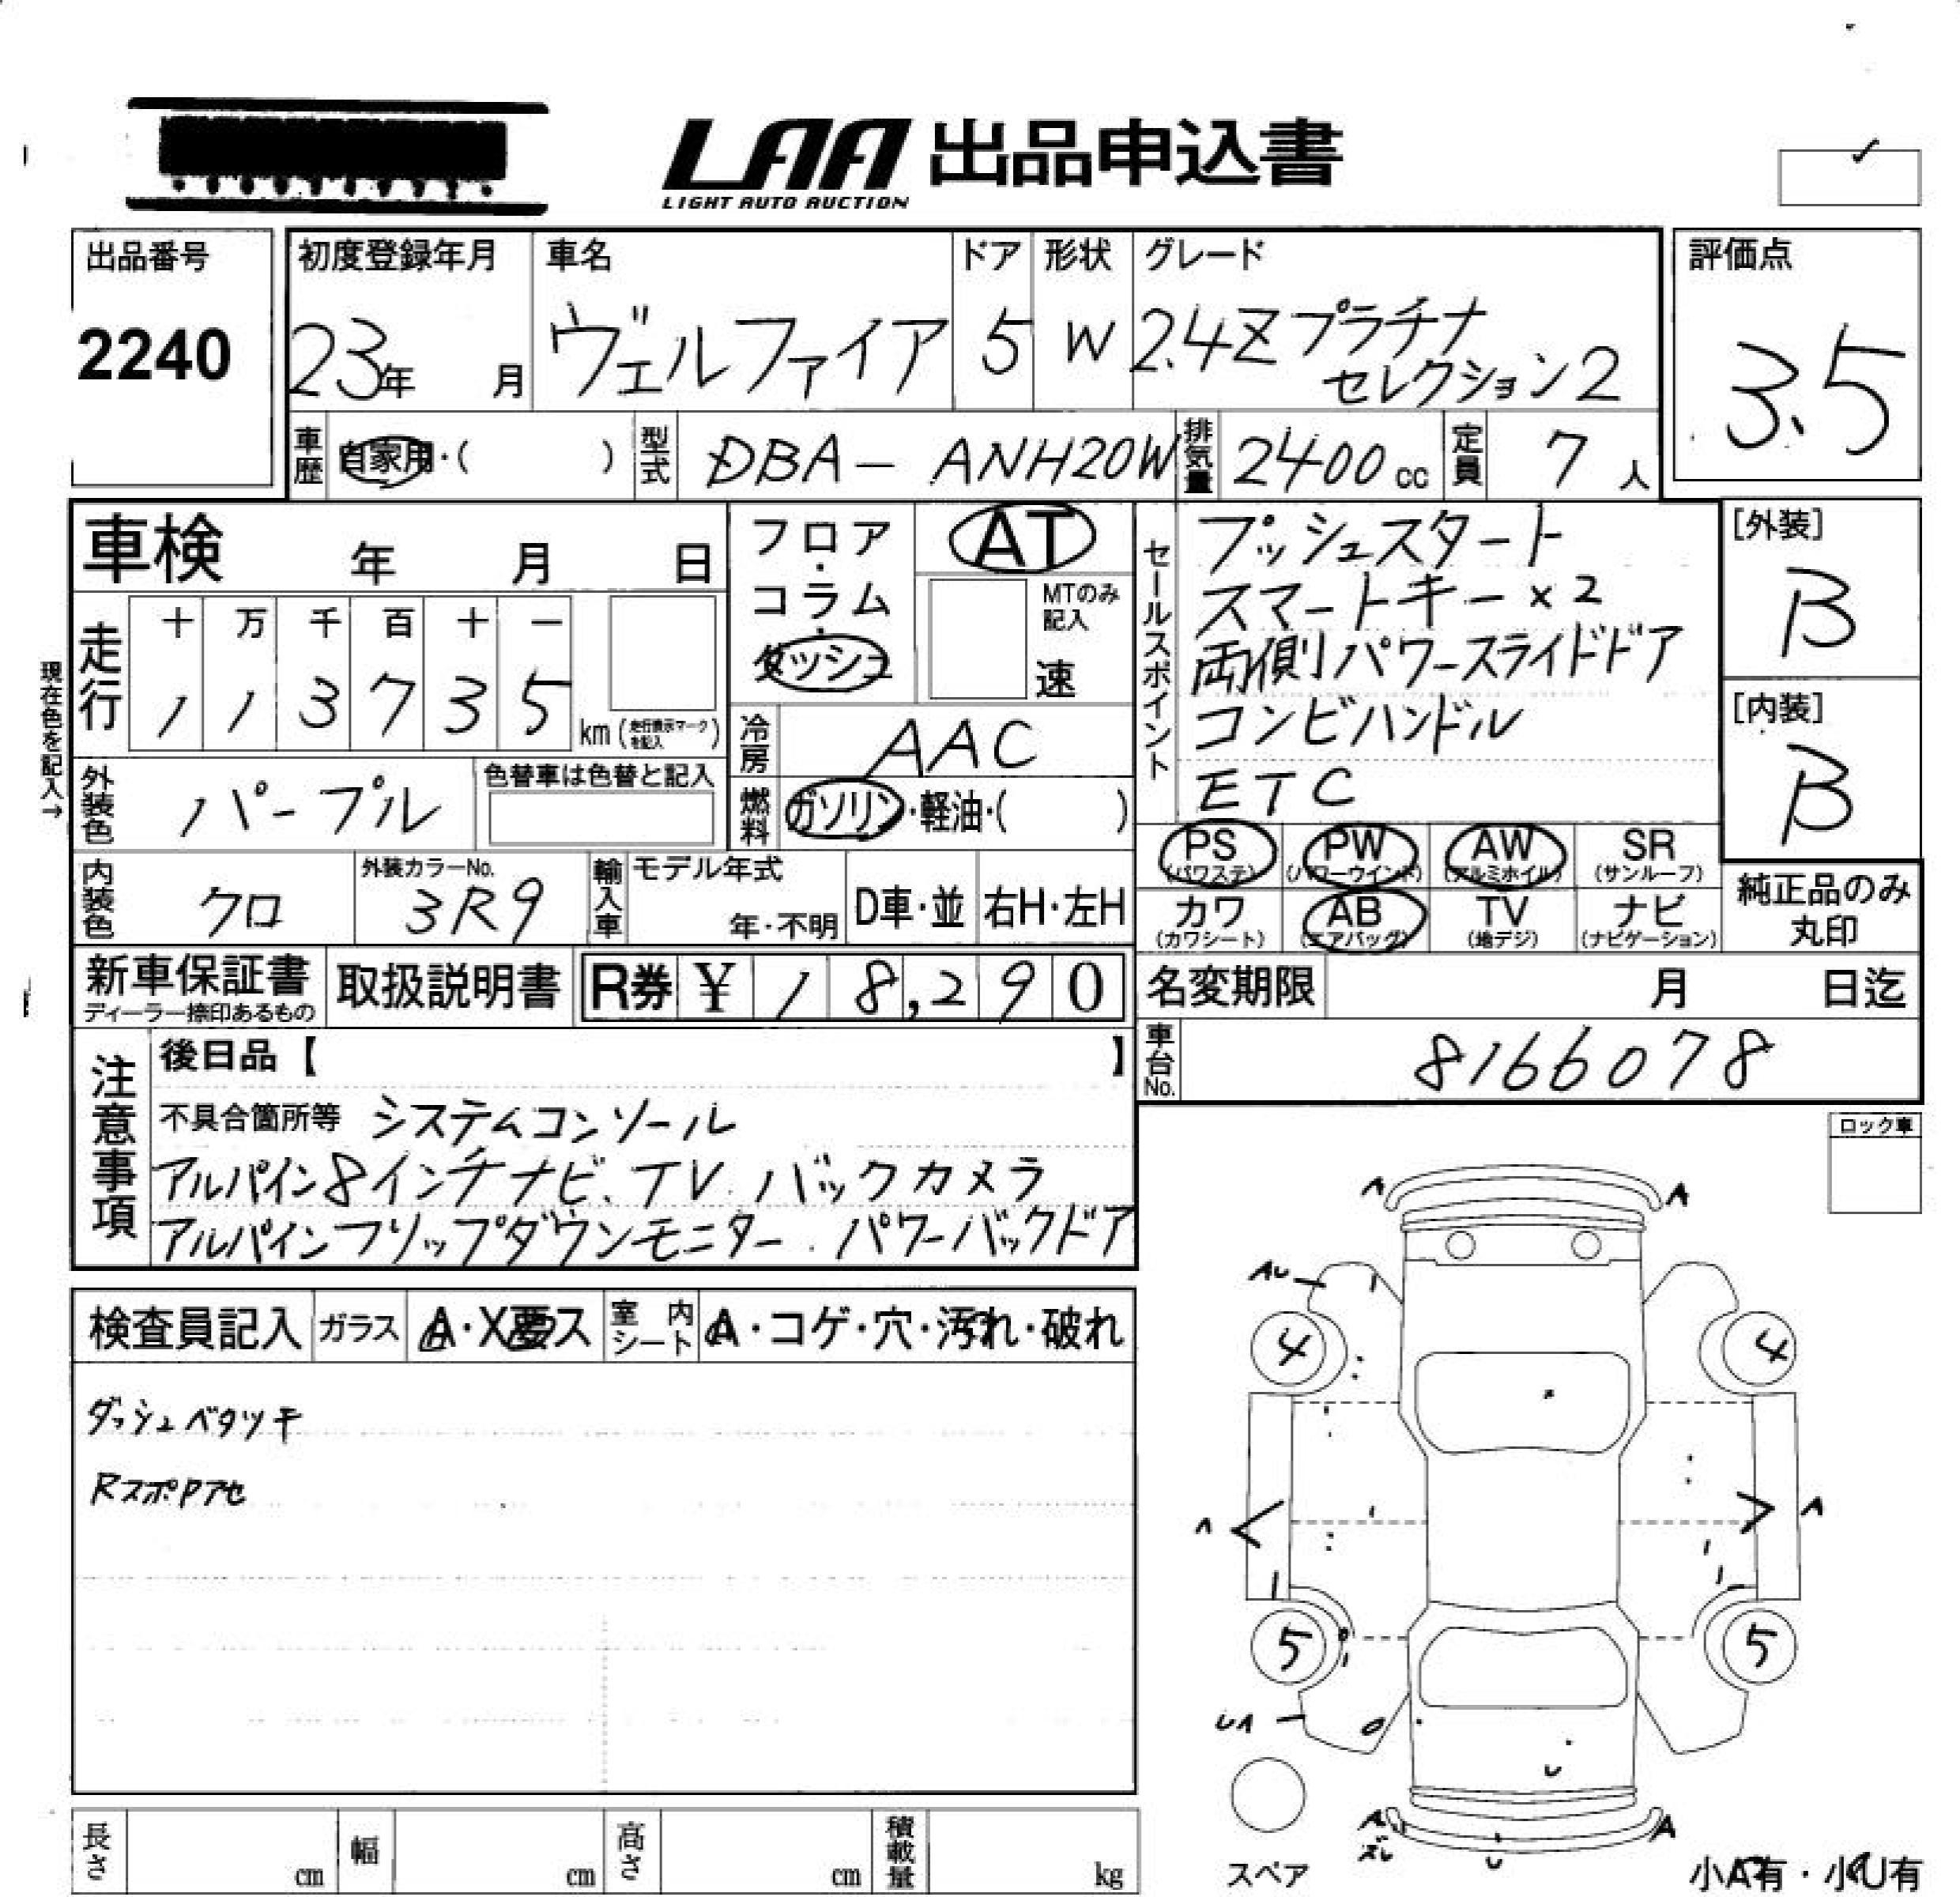 LAA 出品申込書
LIGHT AUTO AUCTION
出品番号
2240
初度登録年月
23年 月
車名
ヴェルファイア
ドア
5
形状
W
グレード
2.4Zプラチナ
セレクション2
評価点
3.5
車歴 自家用・( )
型式 DBA- ANH20W
排気量 2400cc
定員 7人
車検 年 月 日
フロア・
コラム・
ダッシュ
AT
MTのみ
記入
速
セールスポイント
プッシュスタート
スマートキー×2
両側パワースライドドア
コンビハンドル
ETC
[外装]
B
[内装]
B
現在色を記入→
走行
十 万 千 百 十 一
1 1 3 7 3 5
km(走行表示マークを記入)
冷房 AAC
燃料 ガソリン・軽油・( )
外装色 パープル
色替車は色替と記入
PS (パワステ)
PW (パワーウインド)
AW (アルミホイル)
SR (サンルーフ)
カワ (カワシート)
AB (エアバッグ)
TV (地デジ)
ナビ (ナビゲーション)
純正品のみ
丸印
内装色 クロ
外装カラーNo.
3R9
輸入車
モデル年式
年・不明
D車・並
右H・左H
新車保証書
ディーラー捺印あるもの
取扱説明書
R券 ¥ 18,290
名変期限 月 日迄
車台No. 8166078
注意事項
後日品【 】
不具合箇所等 システムコンソール
アルパイン8インチナビ、TV、バックカメラ
アルパインフリップダウンモニター、パワーバックドア
ロック車
検査員記入
ガラス A・X要ス
室内シート A・コゲ・穴・汚れ・破れ
ダッシュベタツキ
RスポPアセ
A A
AU
4 4
A A
5 5
UA
A A
ズレ
U
U
スペア
小A有・小U有
長さ cm
幅 cm
高さ cm
積載量 kg